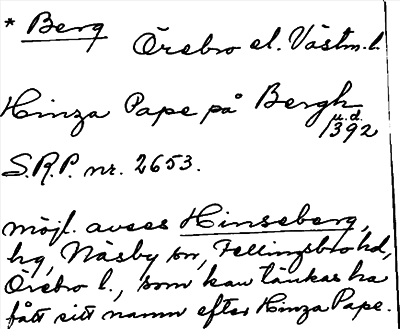 * Berg
Örebro el. Västm. l.
Hinza Pape på Bergh
u.d.
1392
S.R.P. nr. 2653.
möjl. avses Hinseberg,
hg, Näsby sn, Fellingsbro hd,
Örebro l., som kan tänkas ha
fått sitt namn efter Hinza Pape.